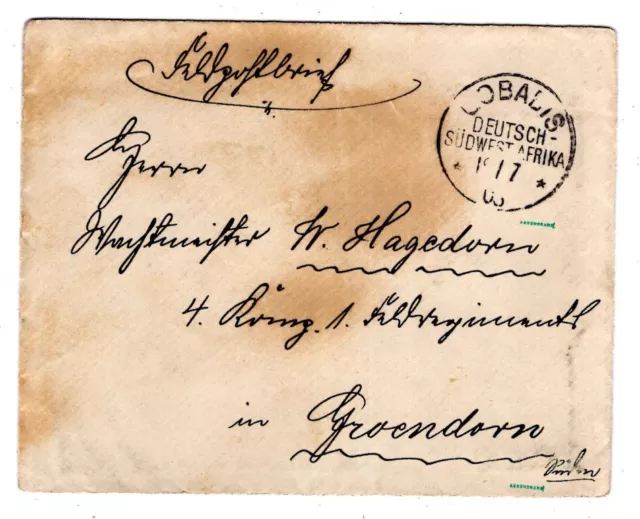 Feldpostbrief
GOBABIS
DEUTSCH-
SÜDWEST-AFRIKA
* 19/7 *
An
Herrn
Wachtmeister W. Hagedorn
4. Komp. 1. Feldregiments
in Groendorn
Süden